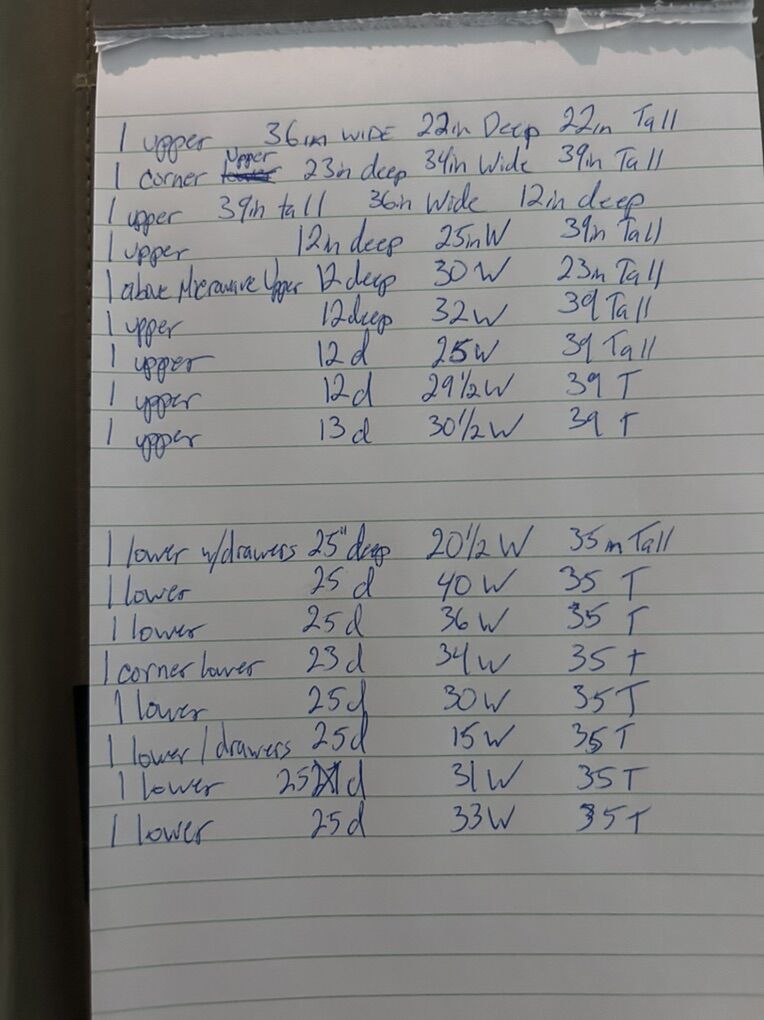 1 upper 36in WIDE 22in Deep 22in Tall
1 corner Upper 23in deep 34in Wide 39in Tall
1 upper 39in tall 36in Wide 12in deep
1 upper 12in deep 25in W 39in Tall
1 above Microwave Upper 12 deep 30 W 23in Tall
1 upper 12 deep 32 W 39 Tall
1 upper 12 d 25 W 39 Tall
1 upper 12 d 29 1/2 W 39 T
1 upper 13 d 30 1/2 W 39 T
1 lower w/drawers 25" deep 20 1/2 W 35in Tall
1 lower 25 d 40 W 35 T
1 lower 25 d 36 W 35 T
1 corner lower 23 d 34 W 35 T
1 lower 25 d 30 W 35 T
1 lower/drawers 25 d 15 W 35 T
1 lower 25 d 31 W 35 T
1 lower 25 d 33 W 35 T